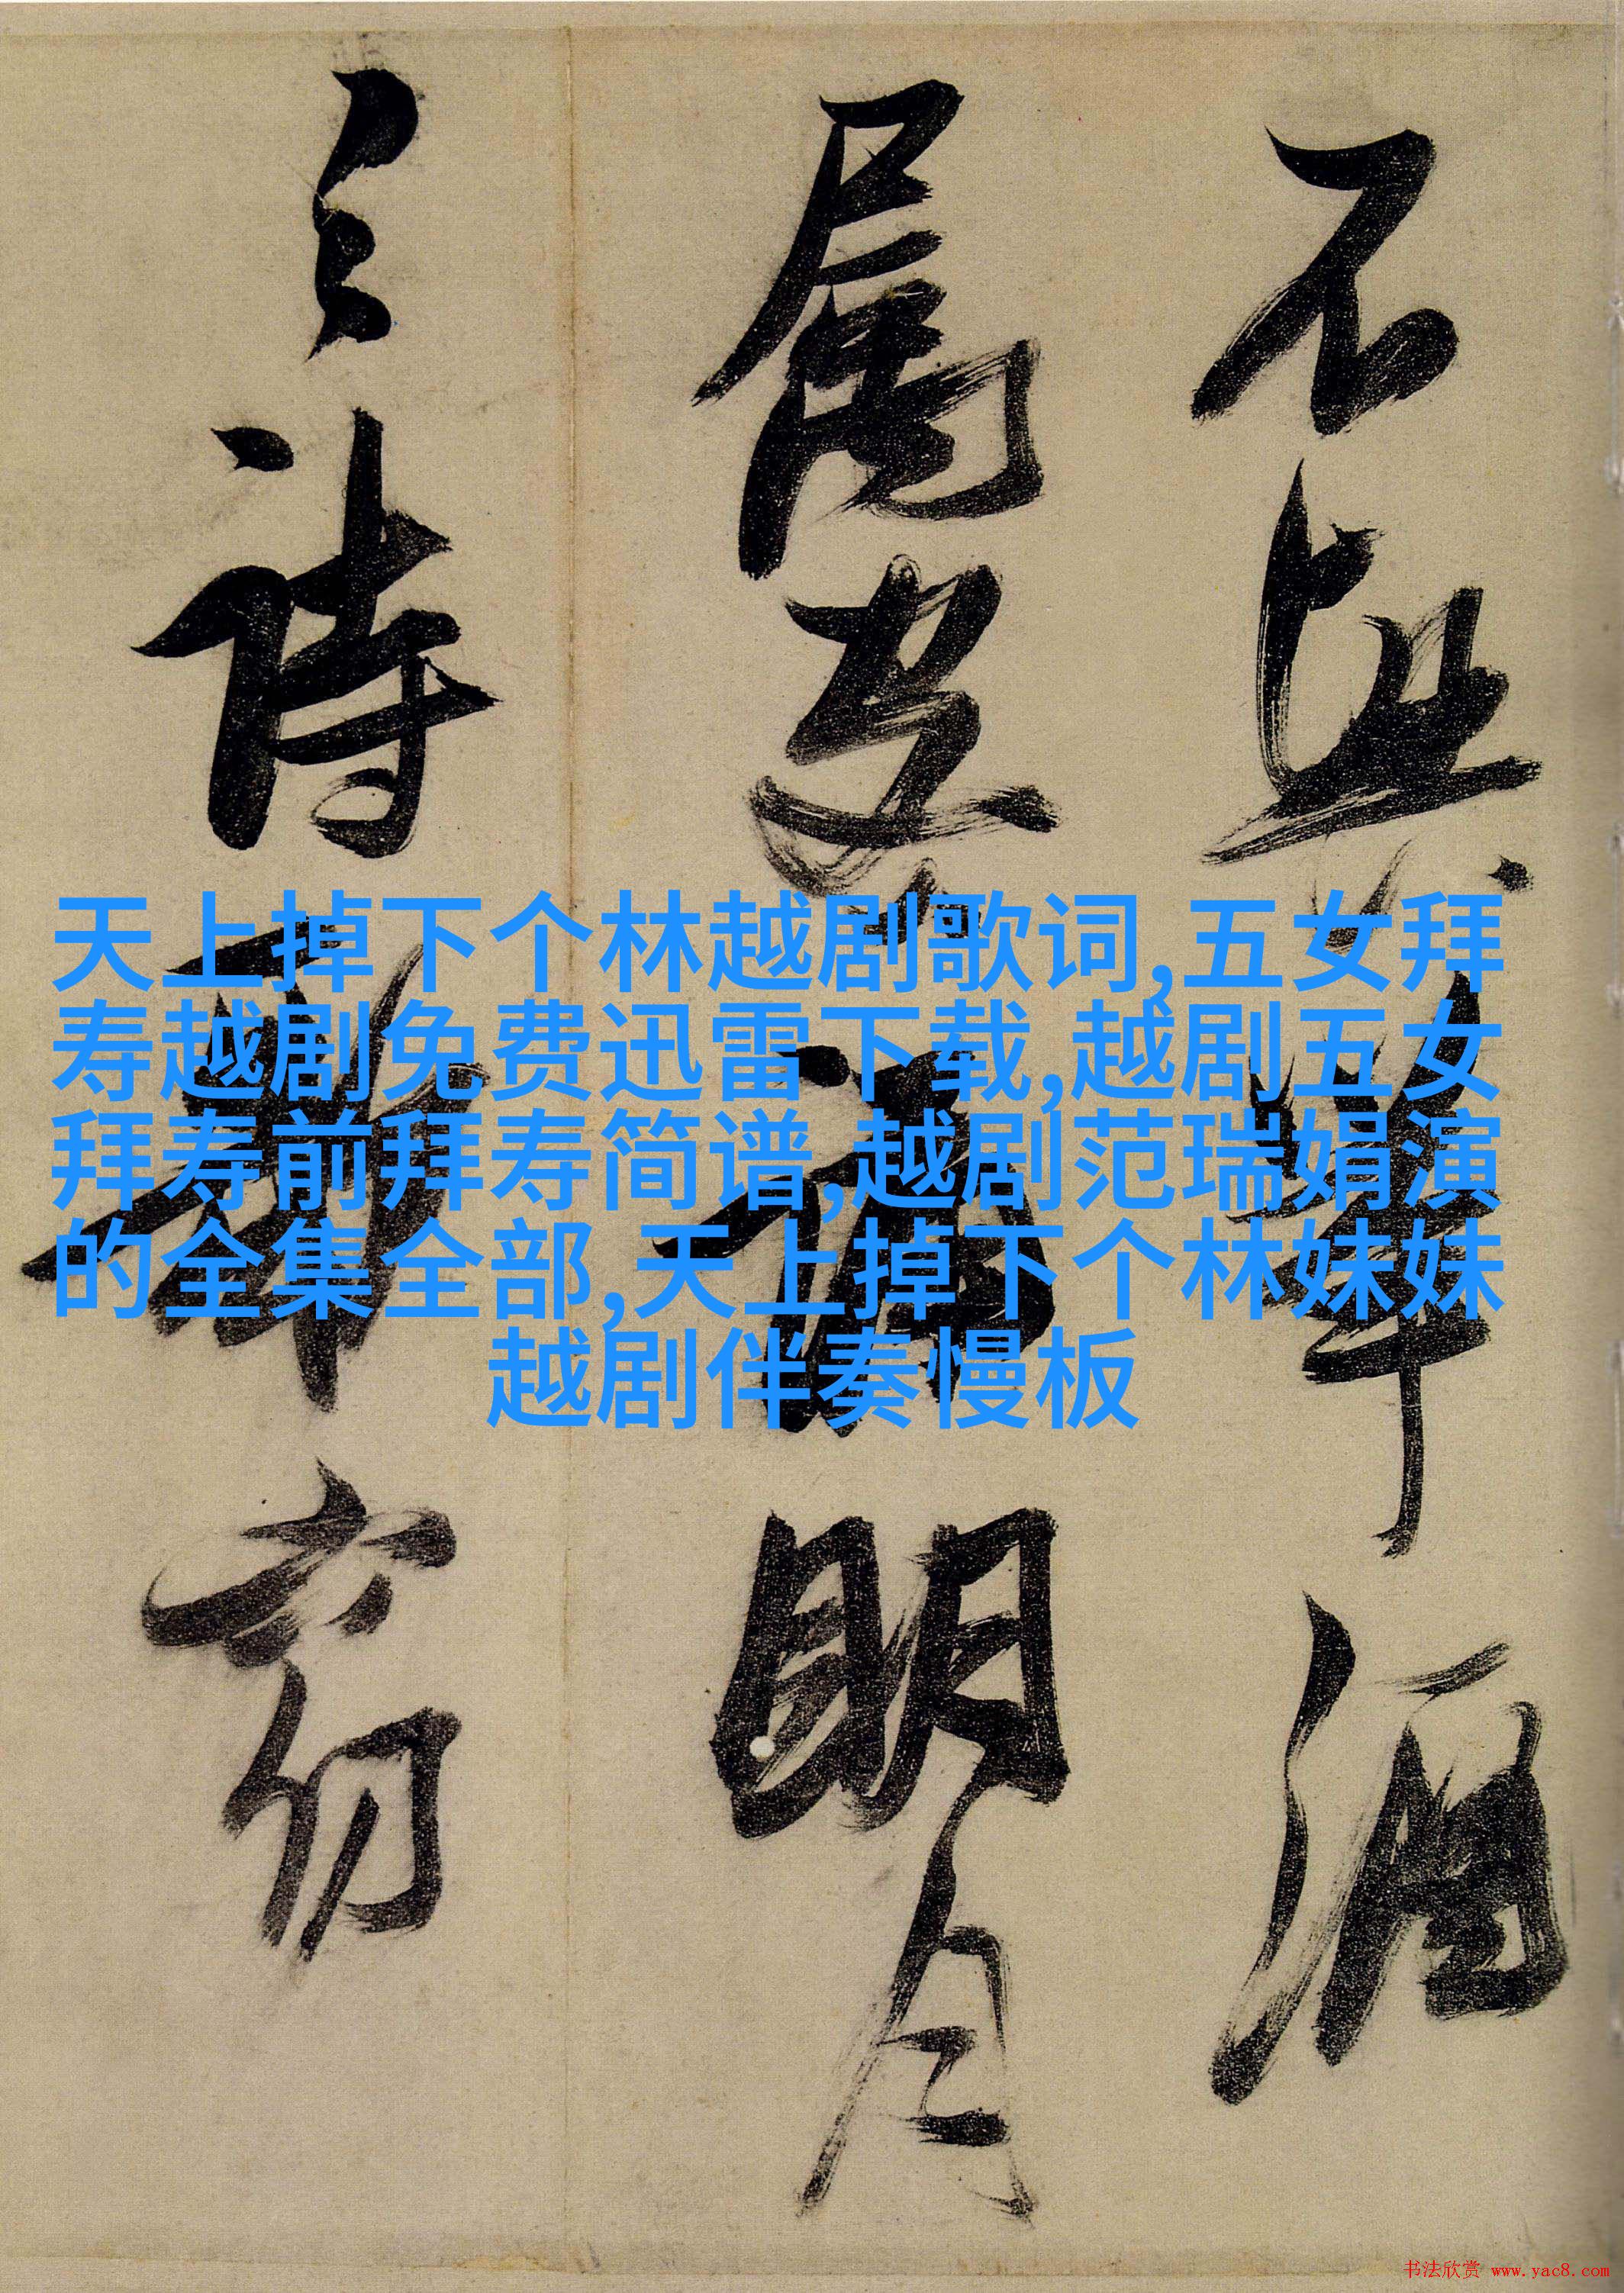 不興舉酒
屬客誦明月
之詩歌窈
天上掉下个林越剧歌词,五女拜
寿越剧免费迅雷下载,越剧五女
拜寿前拜寿简谱,越剧范瑞娟演
的全集全部,天上掉下个林妹妹
越剧伴奏慢板
书法欣赏 www.yac8.com